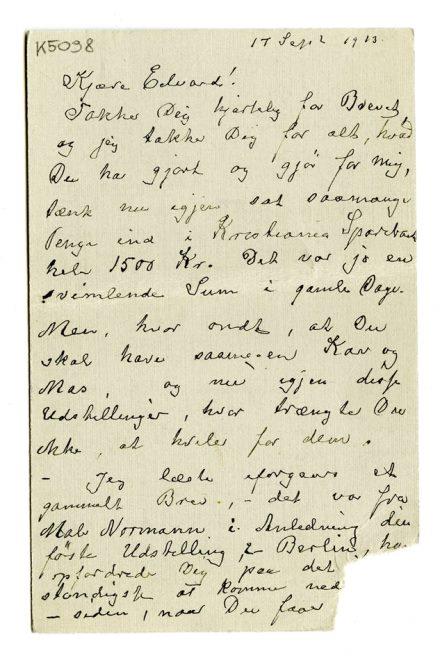 K5098
17 Sept 1913
Kjære Edvard!
Takker Dig hjertelig for Brevet,
og jeg takker Dig for alt, hvad
Du har gjort og gjør for mig,
tænk nu igjen sat saamange
Penge ind i Kristiania Sparebank
hele 1500 Kr. Det var jo en
svimlende Sum i gamle Dage.
Men, hvor ondt, at Du
skal have saamegen Kav og
Mas, og nu igjen disse
Udstillinger, hvor trængte Du
ikke, at hvile for dem.
- Jeg læste iforgaars et
gammelt Brev, - det var fra
Normann i Anledning din
første Udstilling i Berlin, ha
opfordrede Dig paa det
stændigste at komme ned
- siden, naar Du faar